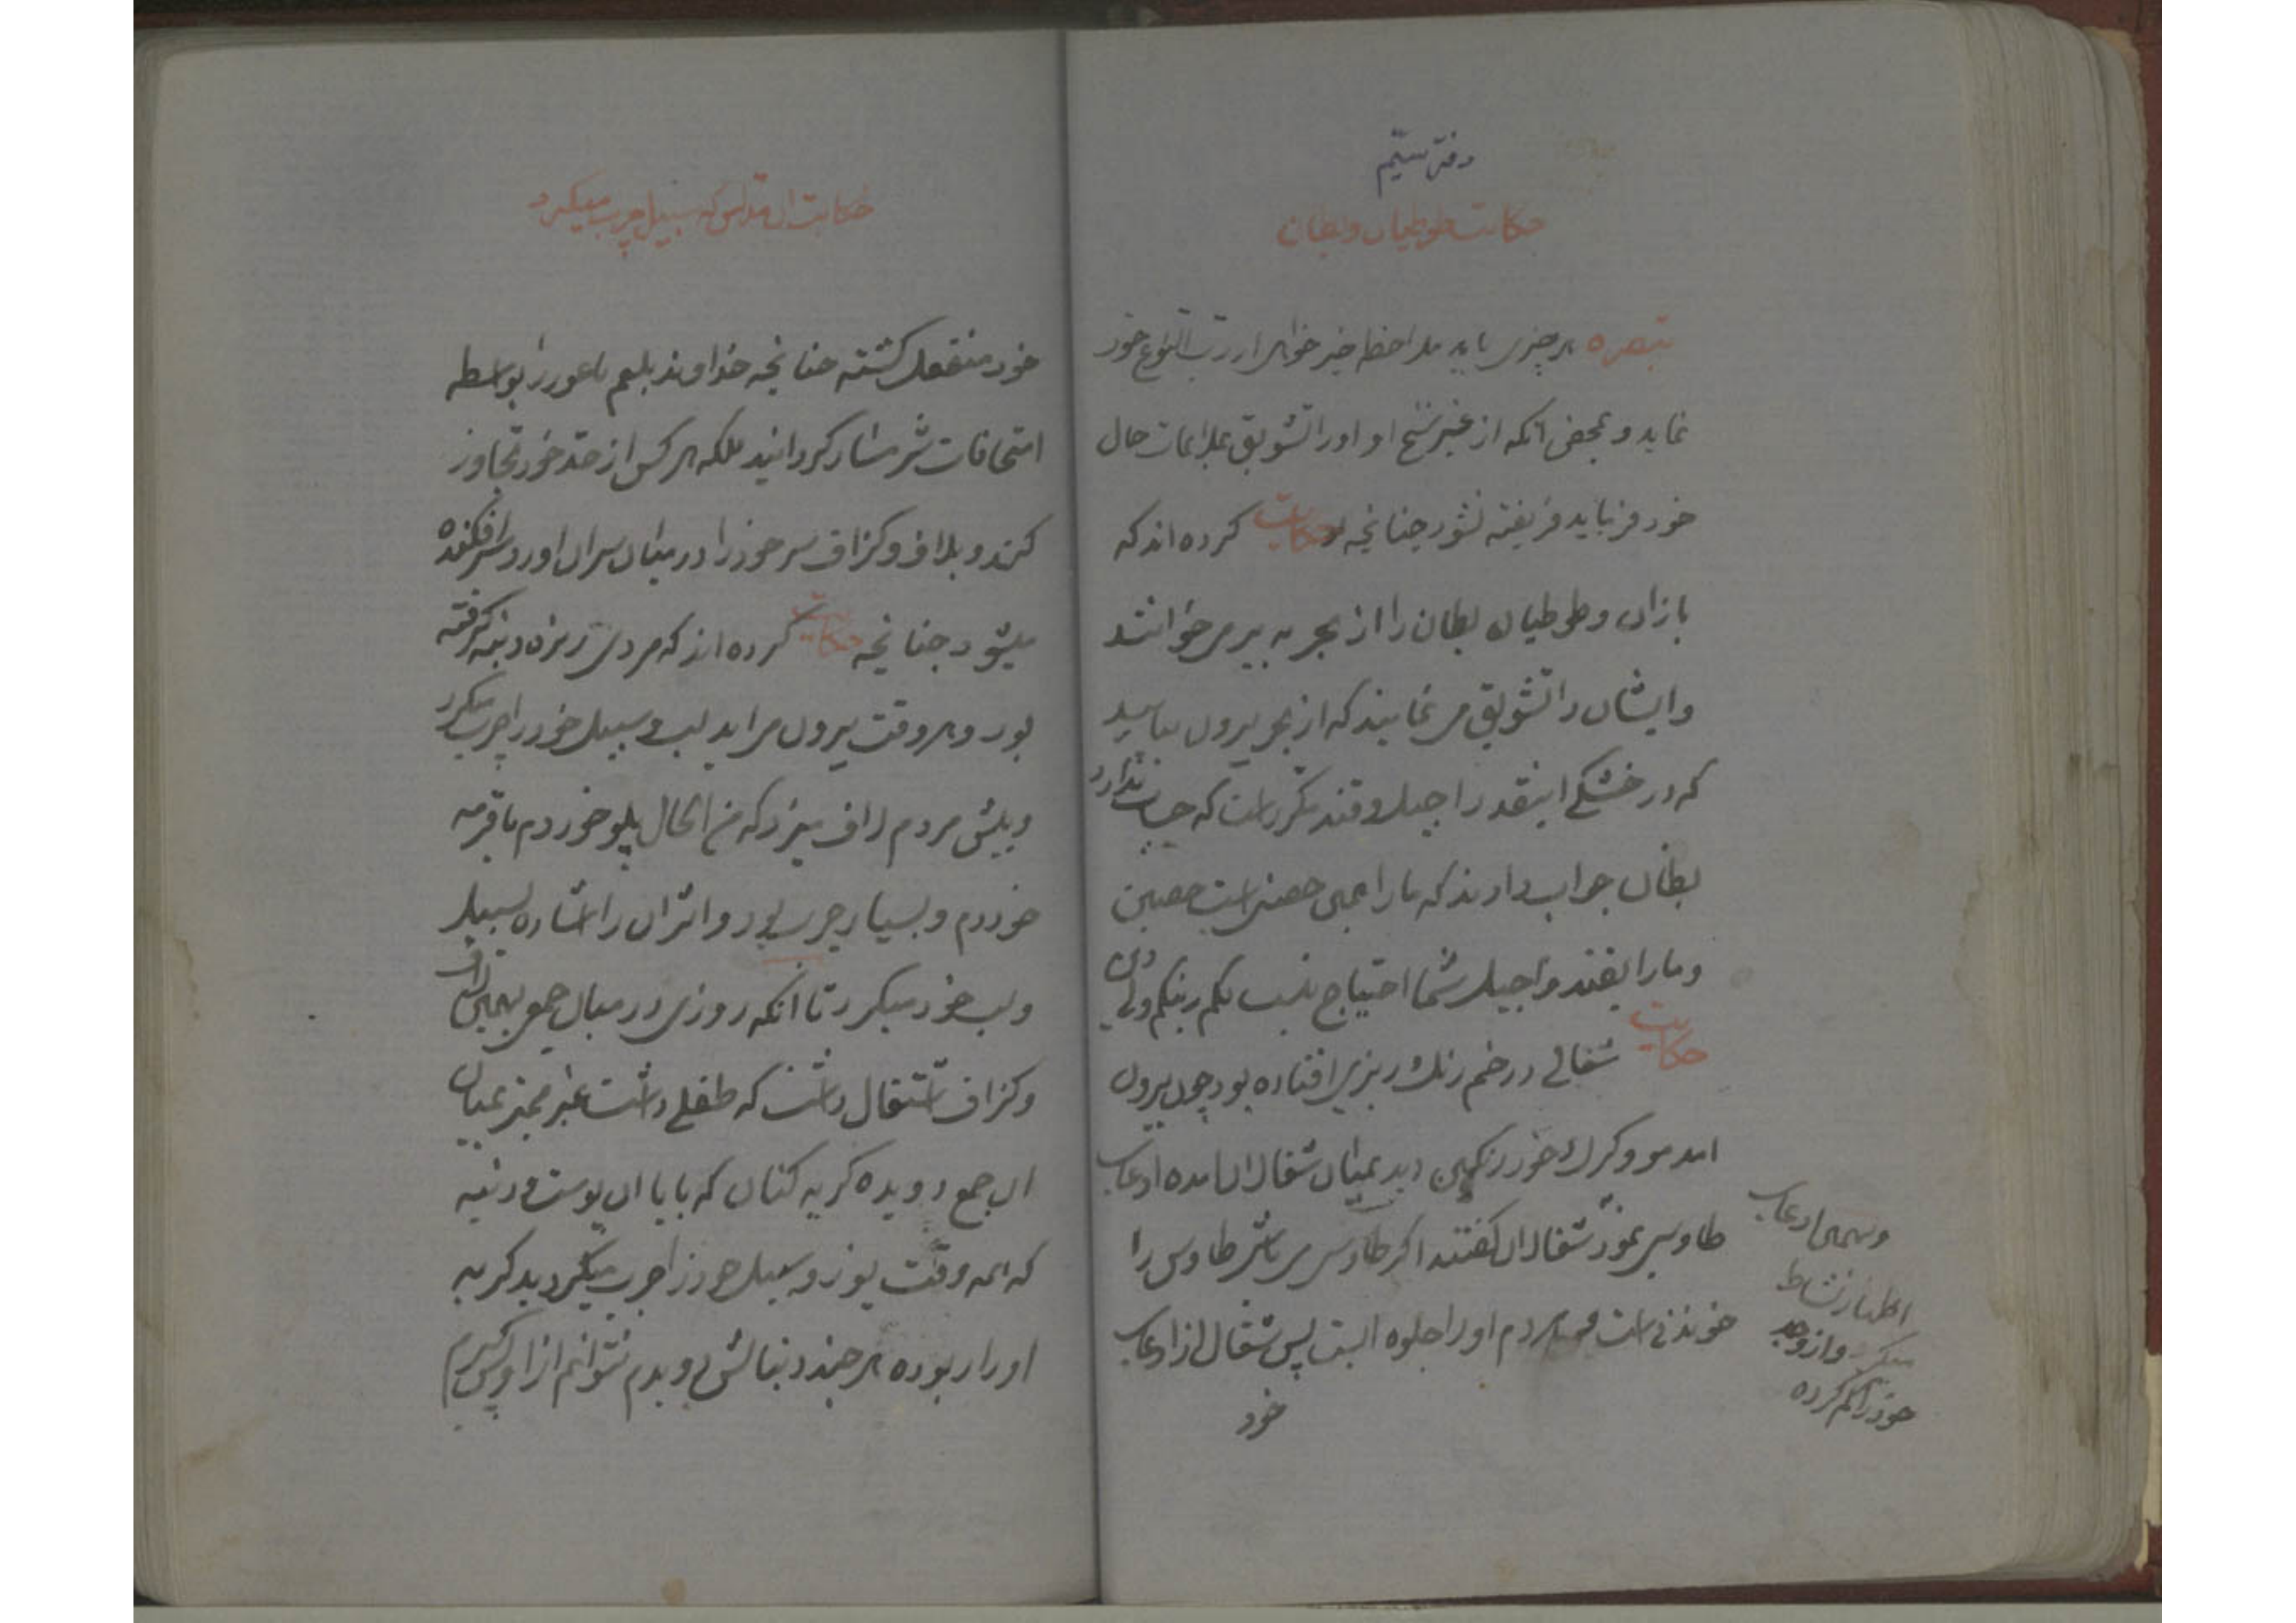 دفتر سیم
حکایت طوطیان و بطان
تبصره هر چیزی باید ملاحظه خیر خواهی از رب النوع خود
نماید و بمحض آنکه از غیر سنخ او اورا تشویق بملایمات حال
خود فرماید فریفته نشود چنانچه حکایت کرده اند که
بازان و طوطیان بطان را از بحر به بر می خواندند
و ایشان را تشویق می نمایند که از بحر بیرون بیایید
که در خشکی اینقدر اجیل و قند مکرر است که حساب ندارد
بطان جواب دادند که مارا همین حصنی است حصین
و مارا بقند و اجیل شما احتیاج نیست لکم دینکم ولی دین
حکایت شغالی در خم رنگ ریزی افتاده بود چون بیرون
امد مو و کرک خود رنگین دید بمیان شغالان امده ادعای
طاوسی نمود شغالان گفتند اگر طاوسی باشی طاوس را
خوندنی است مردم اورا جلوه ایست پس شغال از ادعای
خود
وهمی ادعای
اظهار نشاط
میکرد و از وجد
خود را گم کرده
حکایت آن مفلس که سبیل چرب میکرد
خود منفعل گشته چنانچه خداوند بلعم باعور را بواسطه
امتحانات شرمسار گردانید بلکه هر کس از حد خود تجاوز
کند و بلاف و گزاف سر خود را در میان سران اورد سرافکنده
میشود چنانچه حکایت کرده اند که مردی ریزه دنبه گرفته
بود و هر وقت بیرون می اید لب و سبیل خود را چرب میکرد
و پیش مردم لاف میزد که فی الحال پلو خوردم با قرمه
خوردم و بسیار چرب بود و اثر ان را اشاره بسبیل
و لب خود میکرد تا آنکه روزی در میان جمعی بهمین لاف
و گزاف اشتغال داشت که طفلی داشت غیر ممیز بمیان
ان جمع دویده گریه کنان که بابا ان پوست دنبه
که همه وقت پوز و سبیل خود را چرب میکردید گربه
اورا ربوده هر چند دنبالش دویدم نتوانم از او پس گیرم